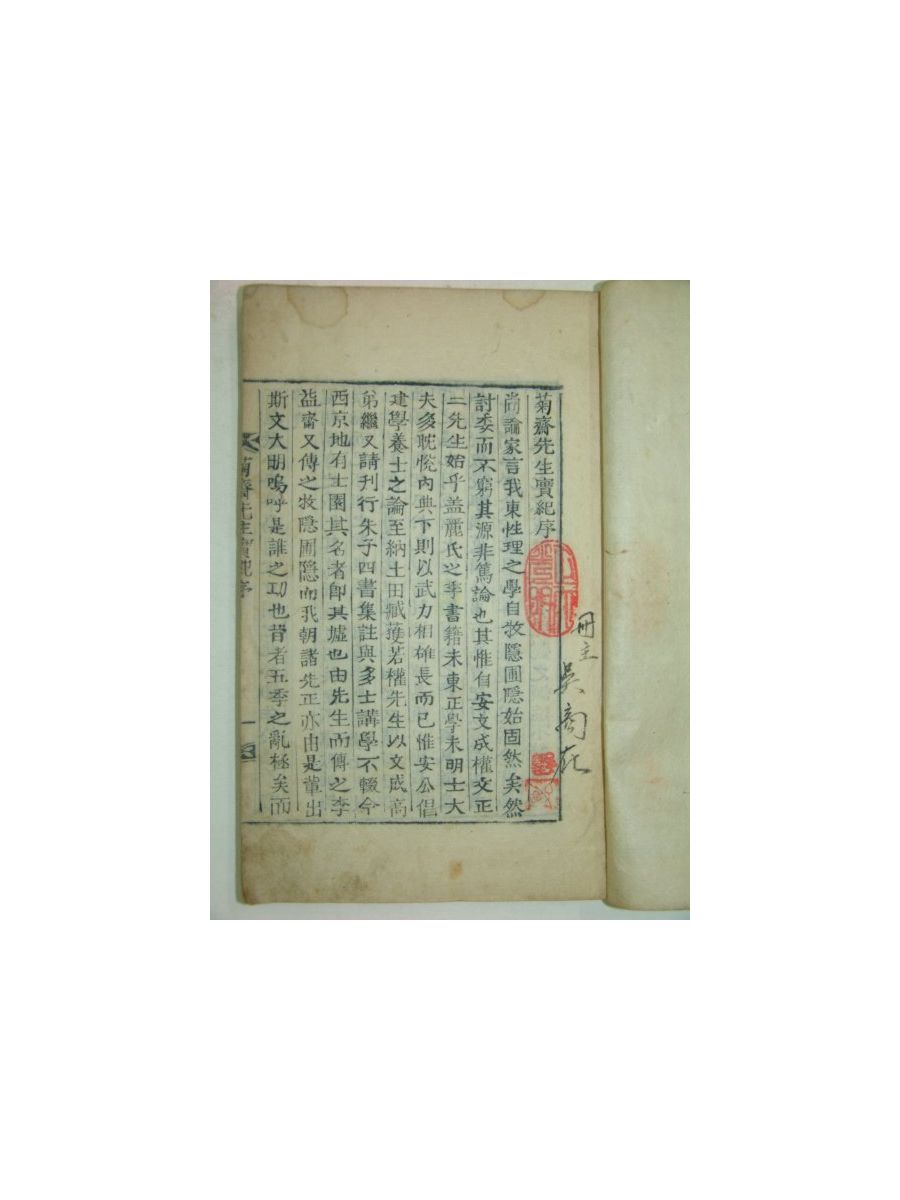 菊齋先生實紀序
尙論家言我東性理之學自牧隱圃隱始固然矣然
討委而不窮其源非篤論也其惟自安文成權文正
二先生始乎盖麗氏之季書籍未東正學未明士大
夫多耽悅內典下則以武力相雄長而已惟安公倡
建學養士之論至納土田臧獲若權先生以文成高
弟繼又請刊行朱子四書集註與多士講學不輟今
西京地有士園其名者卽其墟也由先生而傳之李
益齋又傳之牧隱圃隱而我朝諸先正亦由是輩出
斯文大明嗚呼是誰之功也昔者五季之亂極矣而
菊齋先生實紀序
一
冊主吳